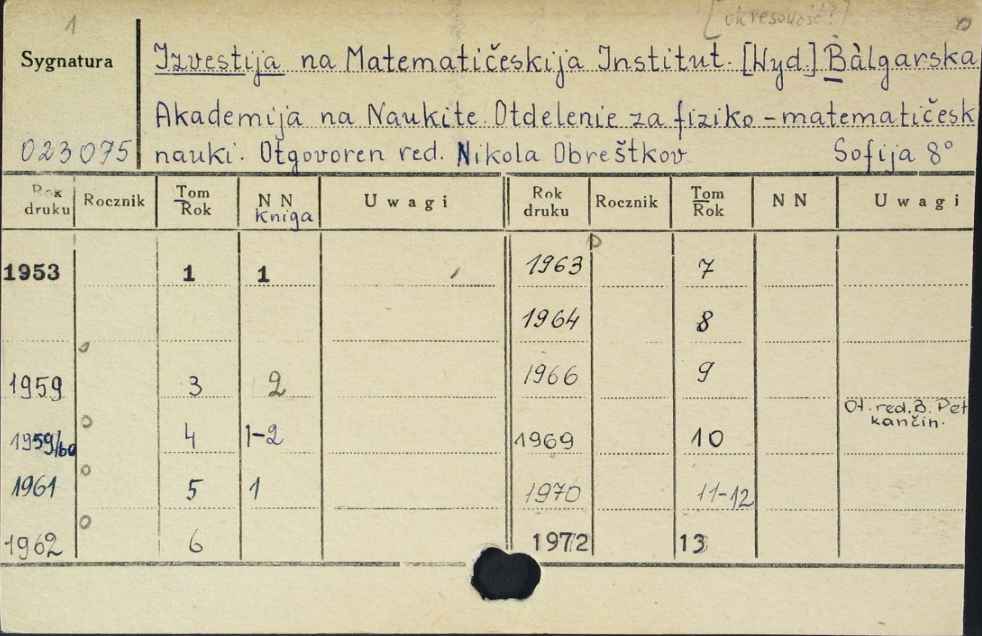 1 [okresowość?]
Sygnatura Izvestija na Matematičeskija Institut. [Wyd.] Bàlgarska
Akademija na Naukite. Otdelenie za fiziko-matematičesk
023075 nauki. Otgovoren red. Nikola Obreškov Sofija 8°
Rok druku Rocznik Tom Rok NN kniga Uwagi Rok druku Rocznik Tom Rok NN Uwagi
1953 1 1 1963 7
1964 8
1959 3 2 1966 9
Ot. red. B. Pet
kančin.
1959/60 4 1-2 1969 10
1961 5 1 1970 11-12
1962 6 1972 13